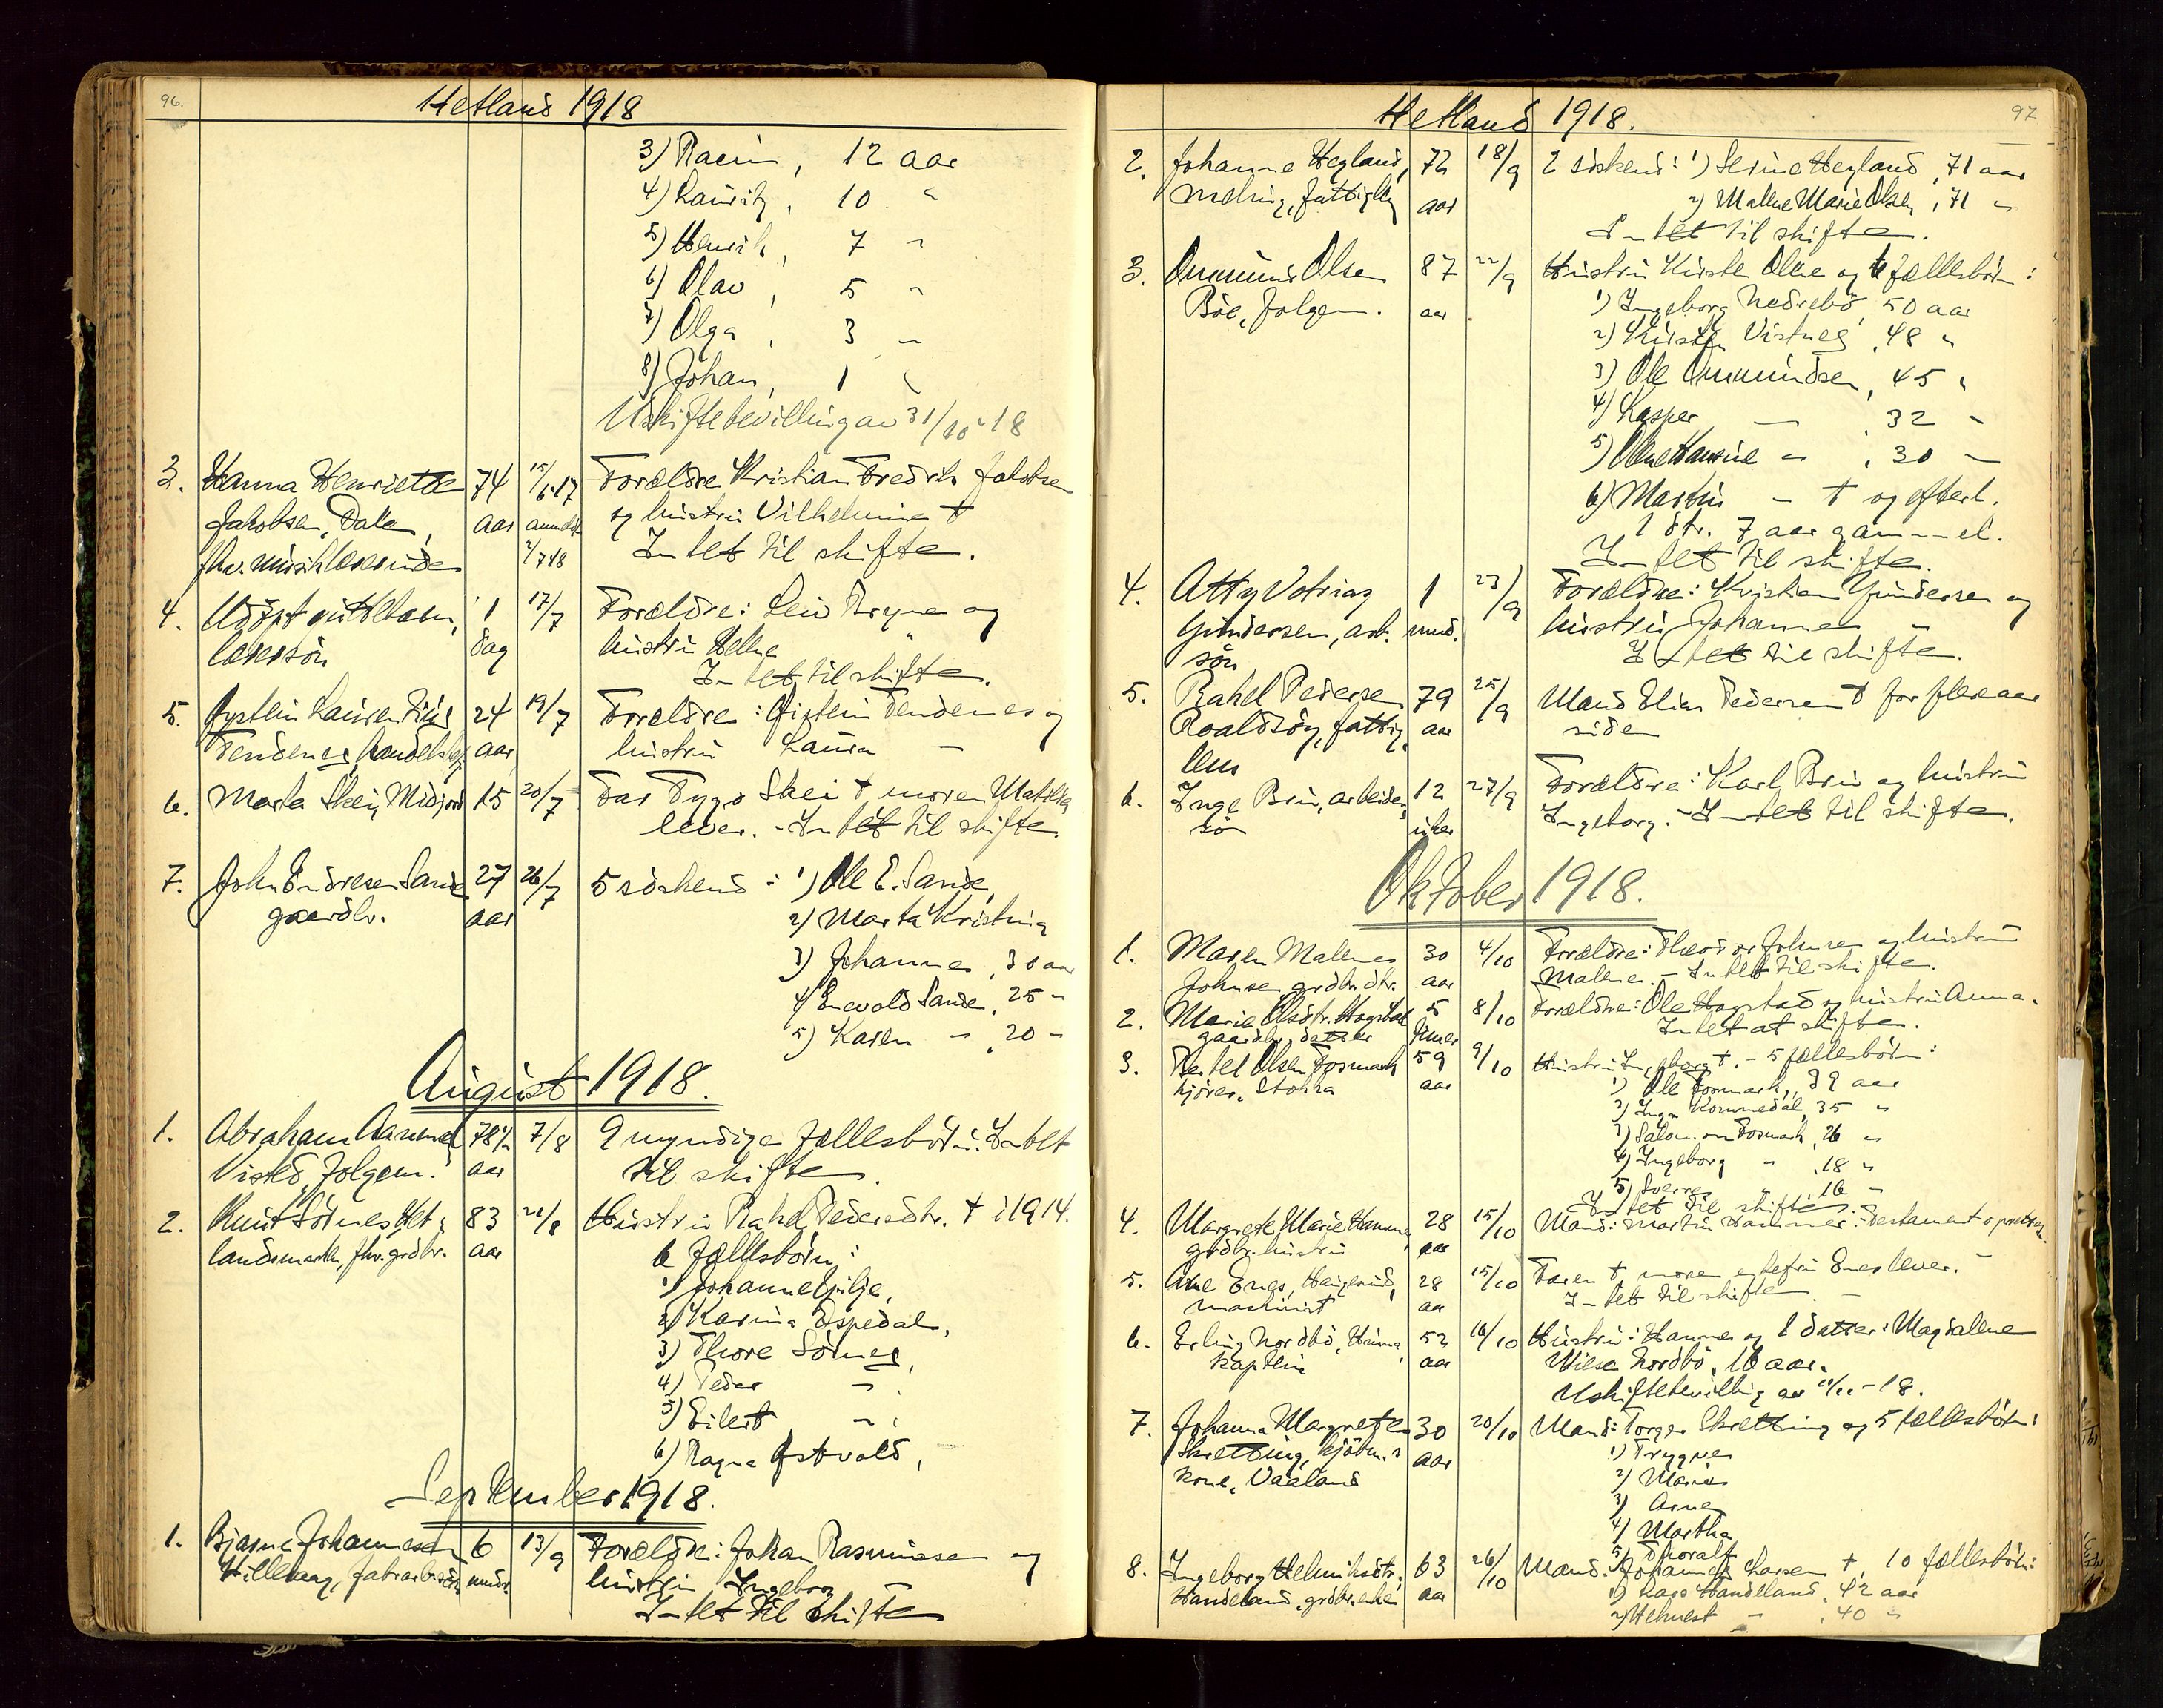 96.
Hetland 1918
3) Racin, 12 aar
4) Lauritz, 10 "
5) Henrik, 7 "
6) Olav, 5 "
7) Olga, 3 "
8) Johan, 1 "
Uskiftebevilling av 31/10-18
3. Hanna Henriette 74 15/6-17 Forældre Kristian Fredrik Jakobsen
Jakobsen, Dale, aar anmeldt og hustru Vilhelmine †
fhv. musiklærerinde 2/7-18 Intet til skifte.
4. Udöpt guttebarn, 1 17/7 Forældre: Leiv Bryne og
lærersön dag hustru Helene "
Intet til skifte.
5. Øystein Laurentius 24 19/7 Forældre: Øistein Tendenes og
Tendenes, handelsbesj. aar hustru Laura -
6. Marta Skei, Midjord 15 20/7 Far Tygo Skei † moren Matilda
lever. - Intet til skifte.
7. John Endresen Sande 27 26/7 5 söskend: 1) Ole E. Sande,
gaardbr. aar 2) Marta Kristina
3) Johanne, 30 aar
4) Enevald Sande, 25 -
5) Karen - , 20 -
August 1918.
1. Abraham 78 1/2 7/8 9 myndige fællesbörn. Intet
Visted, folgem. aar til skifte.
2. Knut Sörnes, Het- 83 21/8 Hustru Rakel Pedersdtr. † i 1914.
landsmarken, fhv. grdbr. aar 6 fællesbörn:
1) Johanne Gjilje,
2) Karina Espedal,
3) Thore Sörnes,
4) Peder - ,
5) Eilert - ,
6) Ragna Østvold,
September 1918.
1. Bjarne Johannesen 6 13/9 Forældre: Johan Rasmussen og
Hillevaag, fabrarb. sön mndr. hustru Ingeborg
Intet til skifte
97
Hetland 1918.
2. Johanne Hegland, 72 18/9 2 söskend: 1) Serine Hegland, 71 aar
Meling, fattiglem aar 2) Malene Marie Olsen, 71 "
Intet til skifte.
3. Ommund Olsen 87 22/9 Hustru Kirsten Olsen og 6 fællesbörn:
Böe, folgem. aar 1) Ingeborg Nedrebö, 50 aar
2) Kirsten Vistnes, 48 "
3) Ole Ommundsen, 45 "
4) Kasper - , 32 -
5) Olene Hansine " , 30 -
6) Martin - † og efterl.
1 dtr. 7 aar gammel.
Intet til skifte.
4. 1 23/9 Forældre: Kristian Gundersen og
Gundersen, arb. mnd. hustru Johanne
sön Intet til skifte.
5. Rakel Pedersen 79 25/9 Mand Elias Pedersen † for flere aar
Roaldsöy, fattig aar siden
lem
6. Inge Bru, arbeider 12 27/9 Forældre: Karl Bru og hustru
sön uker Ingeborg. - Intet til skifte.
Oktober 1918.
1. Maren Malenes 30 4/10 Forældre: Theodor Johnsen og hustru
Johnsen grdbr. dtr. aar Malene. - Intet til skifte.
2. Marie Olsdtr. Hogstad 5 8/10 Forældre: Ole Hogstad og hustru Anna.
gaardbr. datter timer Intet at skifte.
3. Bertel Olsen Fosmark 59 9/10 Hustru Ingeborg †. - 5 fællesbörn:
kjörer, Stokka aar 1) Ole Fosmark, 39 aar
2) Inga Kommedal, 35 "
3) Salomon Fosmark, 26 "
4) Ingeborg " , 18 "
5) Sverre " , 16 "
Intet til skifte.
4. Margrete Marie Hammer 28 15/10 Mand: Martin Hammer. Testament
grdbr. hustru aar
5. Enes, Haugesund, 28 15/10 Faren †, moren enkefru Enes lever.
maskinist aar Intet til skifte.
6. Erling Nordbö, Hinna, 52 16/10 Hustru: Hanna og 1 datter: Magdallene
kaptein aar Wilse Nordbö, 16 aar.
Uskiftebevillig av 11/11-18.
7. Johanna Margrete 30 20/10 Mand: Torger Skretting og 5 fællesbörn:
Skretting, kjöbm.s aar 1) Trygve
kone, Vaaland 2) Maria
3) Arne
4) Martha
5) Thoralf
8. Ingeborg Helmiksdtr. 63 26/10 Mand: Johannes Larsen †, 10 fællesbörn:
Handeland, grdbr. enke aar 1) Lars Handeland, 42 aar
2) Helmest - , 40 "